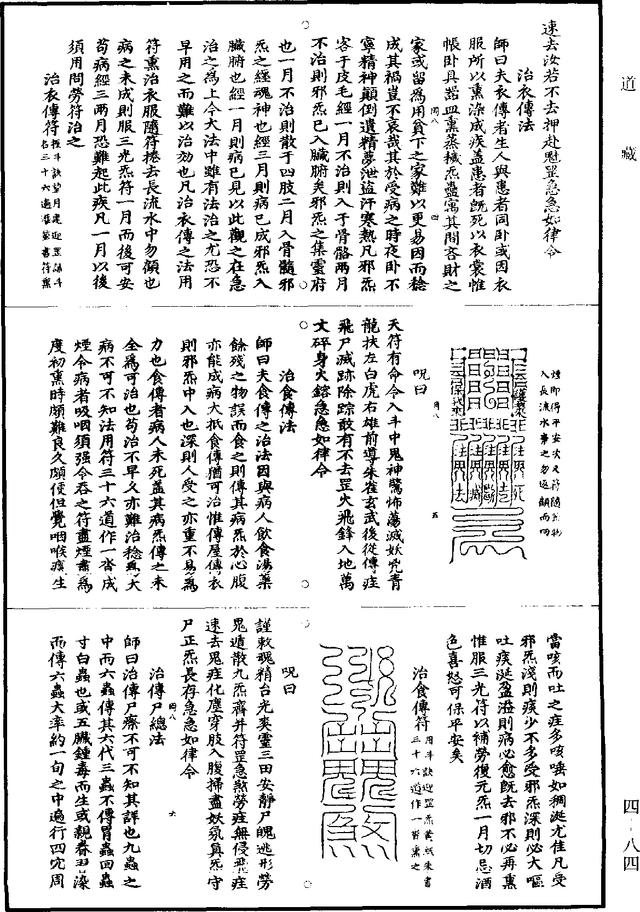 道藏
速去汝若不去押赴魁罡急急如律令
治衣傳法
師曰夫衣傳者生人與患者同卧或因衣
服所以熏染成疾蓋患者旣死以衣裳惟
帳卧具器皿熏蒸穢炁蠱寓其間吝財之
家或留為用貧下之家難以更易因而稔
成其禍豈不哀哉其於受病之時夜卧不
寧精神顛倒遺精夢泄盜汗寒熱凡邪炁
客于皮毛經一月不治則入于骨骼兩月
不治則邪炁已入臟腑矣邪炁之集靈府
也一月不治則散于四肢二月入骨髓邪
炁之經魂神也經三月則病已成邪炁入
臟腑也經一月則病已見以此觀之在急
治之為上今大法中雖有法治之尤恐不
早用之而難以治効也凡治衣傳之法用
符熏治衣服隨符捲去長流水中勿顧也
病之未成則服三光炁符一月而後可安
苟病經三兩月恐難起此疾凡一月以後
須用問勞符治之
治衣傳符
煙即得平安次入符隨煞物
入長流水事之勿返顧而回
呪曰
天符有命令入斗中鬼神驚怖蕩滅妖兇青
龍扶左白虎右雄前導朱雀玄武後從傳疰
飛尸滅跡除踪敢有不去罡火飛鋒入地萬
丈碎身火鎔急急如律令
治食傳法
師曰夫食傳之治法因與病人飲食湯藥
餘殘之物誤而食之則傳其病炁於心腹
亦能成病大抵食傳猶可治惟傳屋傳衣
則邪炁中入也深則人受之亦重不易為
力也食傳者病人未死蓋其病炁傳之未
全為可治也苟治不早久亦難治稔為大
病不可不知法用符三十六道作一沓成
煙令病者吸咽須强令吞之符盡煙盡為
度初熏時頗難良久頗便但覺咽喉痰生
當咳而吐之疰多咳唾如稠涎尤佳凡受
邪炁淺則痰少不多受邪炁深則必大嘔
吐痰涎盈溢則病必愈旣去邪不必再熏
惟服三光符以補勞復元炁一月切忌酒
色喜怒可保平安矣
治食傳符
用斗訣迎罡炁黃紙朱書
三十六道作一沓熏之
呪曰
謹敕魂精台光爽靈三田安靜尸魄逃形勞
鬼遁散九炁齊并符罡急煞勞疰無侵飛疰
速去鬼疰化塵穿肢入腹掃盡妖氛真炁守
尸正炁長存急急如律令
治傳尸總法
師曰治傳尸瘵不可不知其詳也九蟲之
中而六蟲傳其六代三蟲不傳胃蟲蛔蟲
寸白蟲也或五臟鍾毒而生或親眷習染
而傳六蟲大率約一旬之中遍行四穴周
四八 四
四八 五
四八 六
四-八四